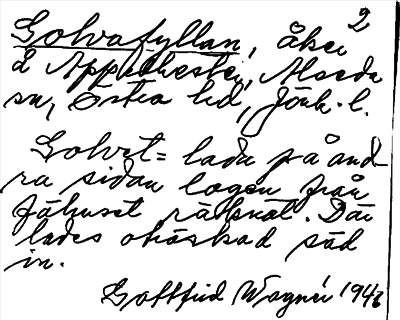 2
Golvafyllan, åker
å Appelhester, Alseda
sn, Östra hd, Jönk. l.
Golvet = lada på and-
ra sidan logen från
fähuset räknat. Där
lades otröskad säd
in.
Gottfrid Wagnér 1948